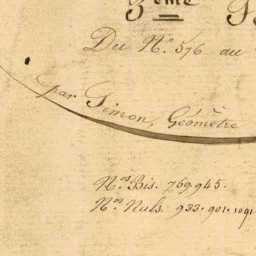 3ème
Du N° 576 au
par Simon, Géomètre
Nos Bis. 769.945.
Nos Nuls. 933.901.1091